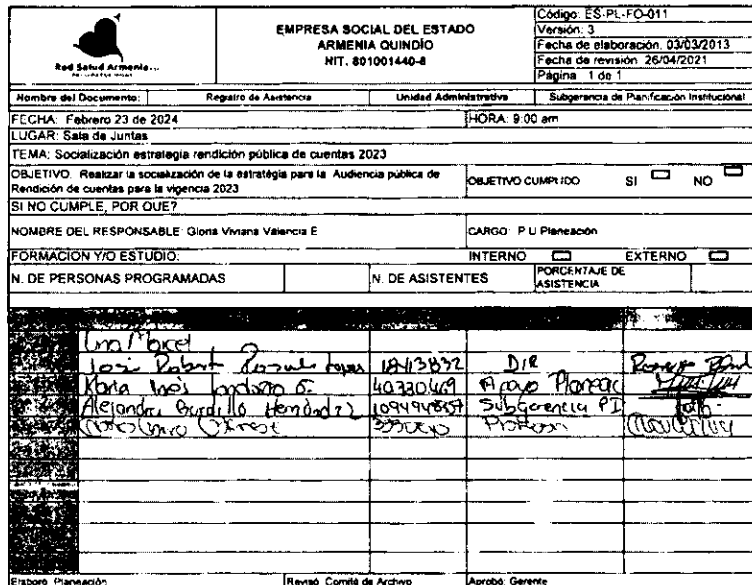 Red Salud Armenia...
EMPRESA SOCIAL DEL ESTADO
ARMENIA QUINDÍO
NIT. 801001440-8
Código: ES-PL-FO-011
Versión: 3
Fecha de elaboración: 03/03/2013
Fecha de revisión 26/04/2021
Página 1 de 1
Nombre del Documento: Registro de Asistencia Unidad Administrativa Subgerencia de Planificación Institucional
FECHA: Febrero 23 de 2024 HORA: 9:00 am
LUGAR: Sala de Juntas
TEMA: Socialización estrategia rendición pública de cuentas 2023
OBJETIVO: Realizar la socialización de la estratégia para la Audiencia pública de
Rendición de cuentas para la vigencia 2023
OBJETIVO CUMPLIDO SI NO
SI NO CUMPLE, POR QUE?
NOMBRE DEL RESPONSABLE: Gloria Viviana Valencia E CARGO: P U Planeación
FORMACION Y/O ESTUDIO: INTERNO EXTERNO
N. DE PERSONAS PROGRAMADAS N. DE ASISTENTES PORCENTAJE DE
ASISTENCIA
Jose Robert DIR
Maria Ines Londoño G. Apoyo Planeac
Alejandra Hernández Subgerencia PI
Elaboró: Planeación Revisó: Comité de Archivo Aprobó: Gerente